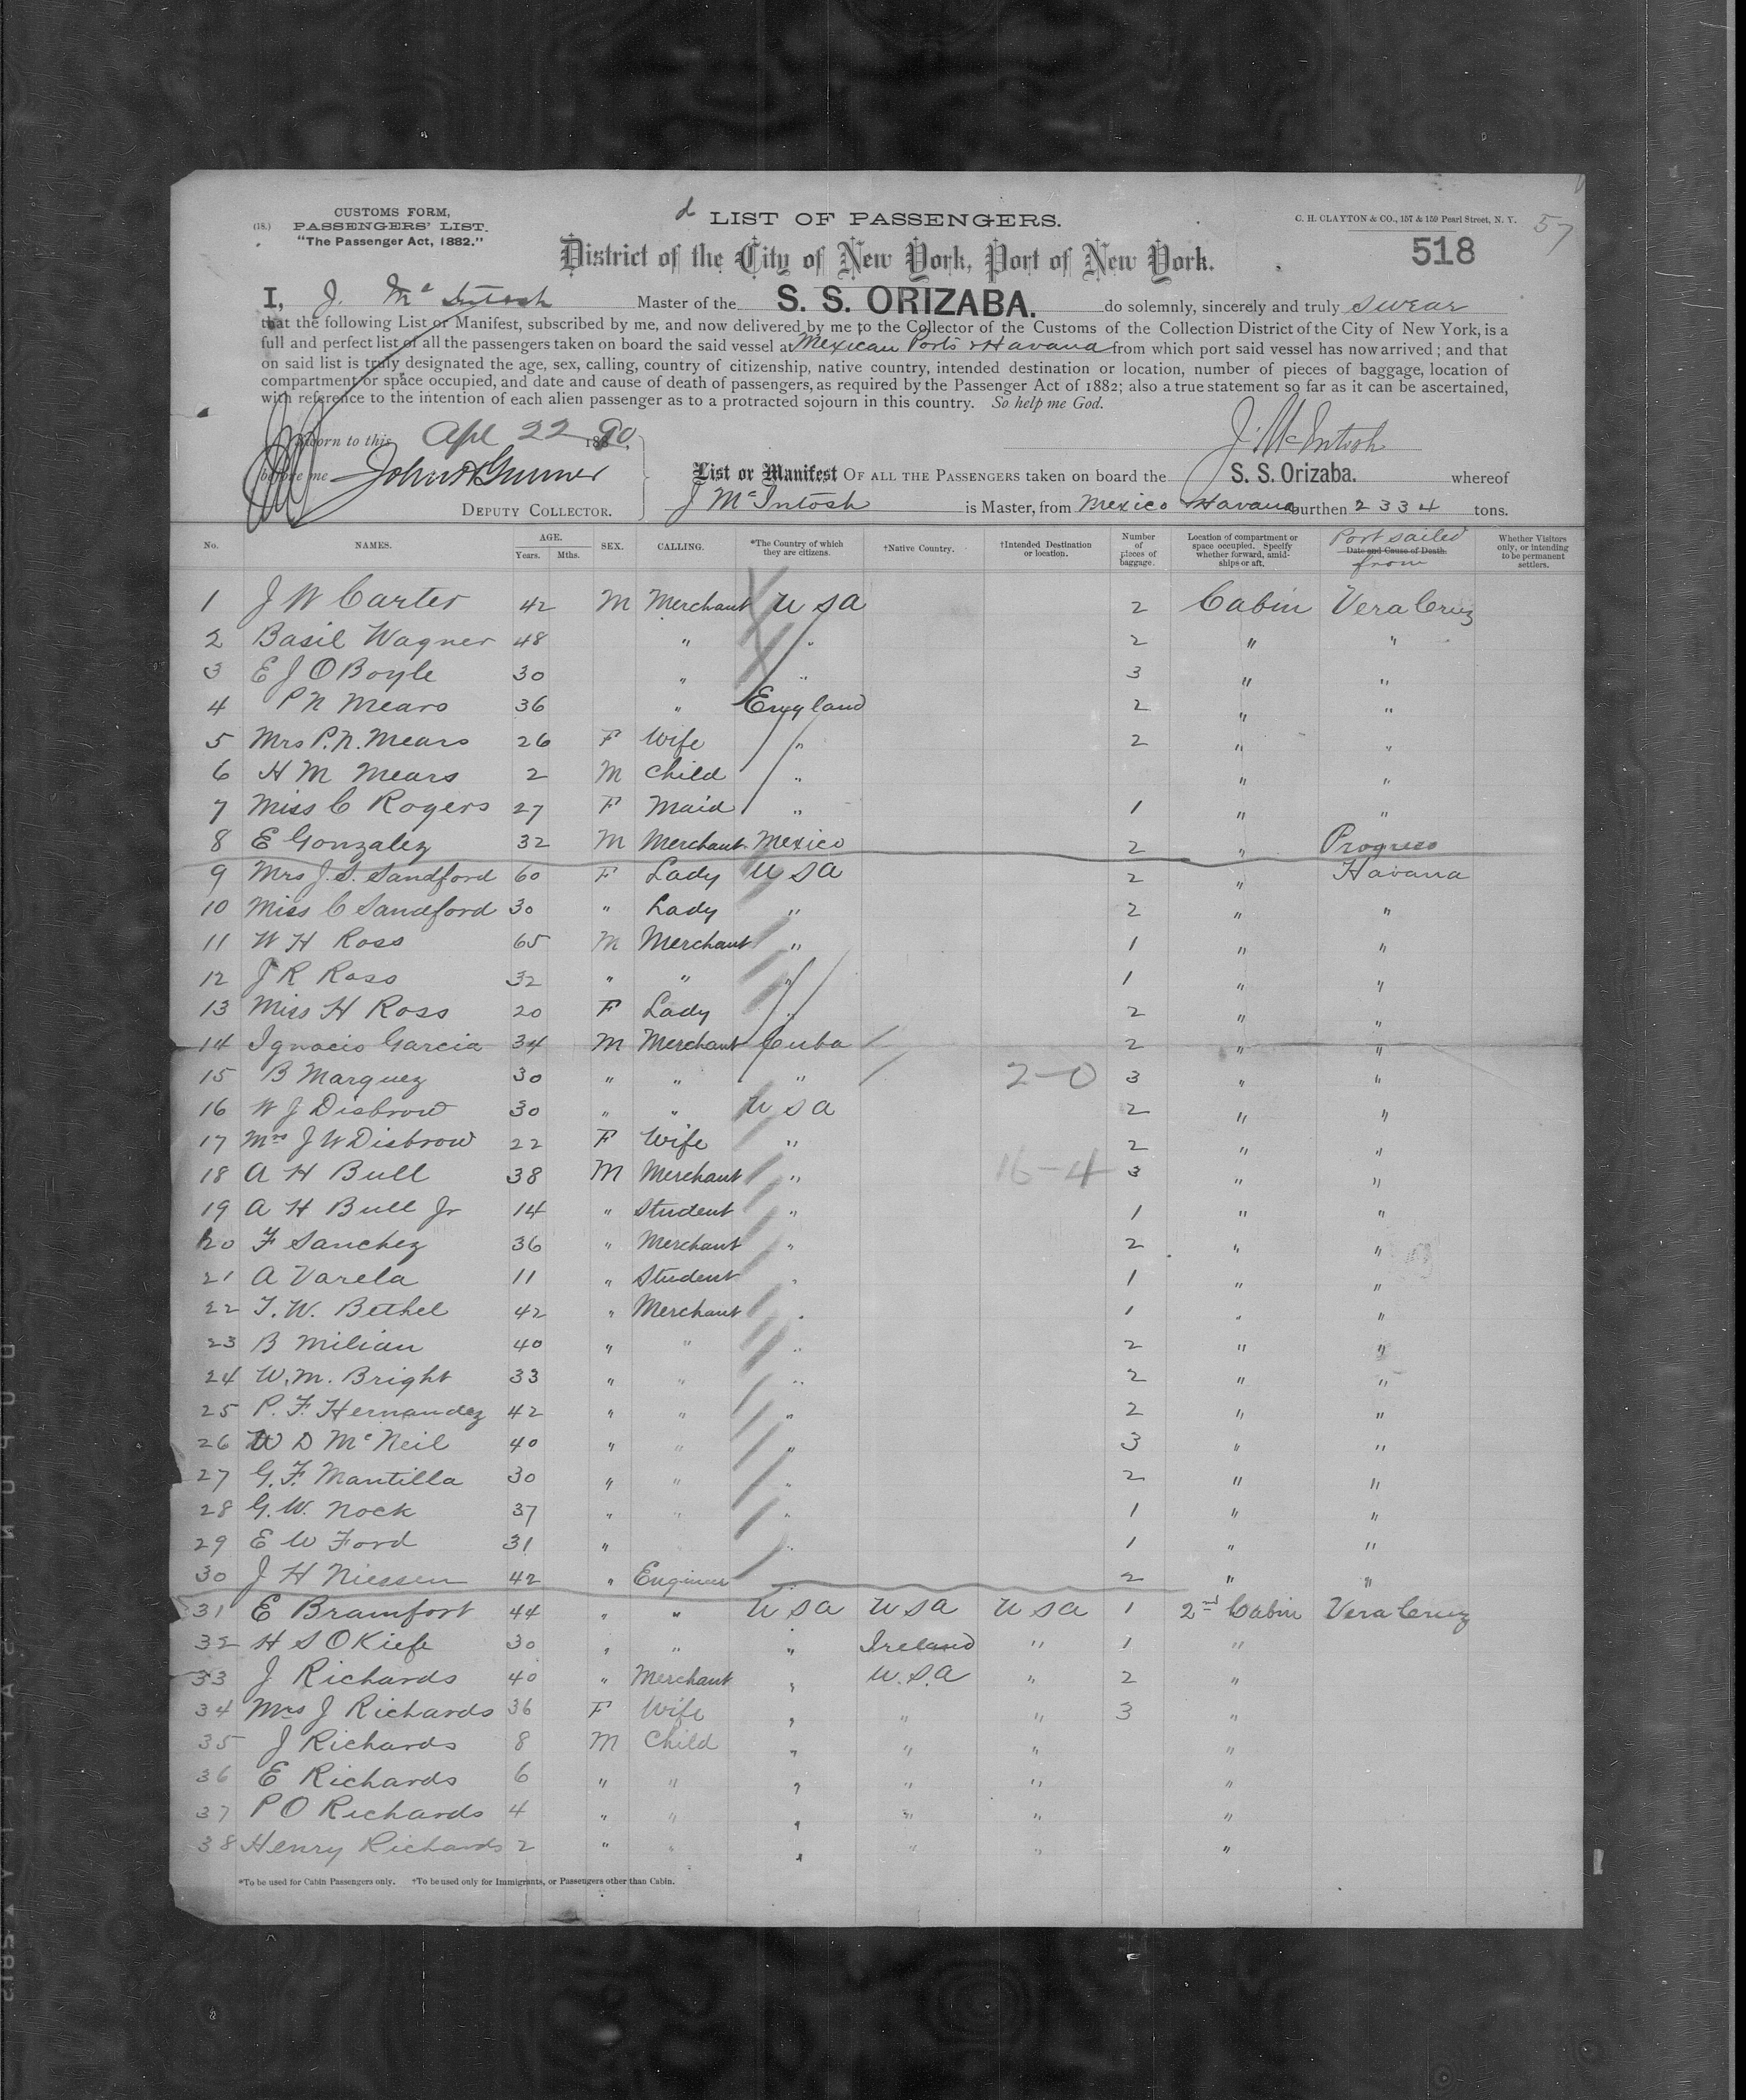 CUSTOMS FORM,
(18.) PASSENGERS' LIST.
"The Passenger Act, 1882."
d LIST OF PASSENGERS.
C. H. CLAYTON & CO., 157 & 159 Pearl Street, N. Y.
57
518
District of the City of New York, Port of New York.
I, J. McIntosh Master of the S. S. ORIZABA. do solemnly, sincerely and truly swear
that the following List or Manifest, subscribed by me, and now delivered by me to the Collector of the Customs of the Collection District of the City of New York, is a
full and perfect list of all the passengers taken on board the said vessel at Mexican Ports & Havana from which port said vessel has now arrived; and that
on said list is truly designated the age, sex, calling, country of citizenship, native country, intended destination or location, number of pieces of baggage, location of
compartment or space occupied, and date and cause of death of passengers, as required by the Passenger Act of 1882; also a true statement so far as it can be ascertained,
with reference to the intention of each alien passenger as to a protracted sojourn in this country. So help me God.
Sworn to this Apl 22 1890.
J. McIntosh
before me
DEPUTY COLLECTOR.
List or Manifest OF ALL THE PASSENGERS taken on board the S. S. Orizaba. whereof
J McIntosh is Master, from Mexico & Havana burthen 2334 tons.
No. NAMES. AGE. Years. Mths. SEX. CALLING. *The Country of which they are citizens. †Native Country. †Intended Destination or location. Number of pieces of baggage. Location of compartment or space occupied. Specify whether forward, amidships or aft. Date and Cause of Death. Port sailed from Whether Visitors only, or intending to be permanent settlers.
1 J W Carter 42 M Merchant USA 2 Cabin Vera Cruz
2 Basil Wagner 48 " " 2 " "
3 E J OBoyle 30 " " 3 " "
4 P N Mears 36 " England 2 " "
5 Mrs P. N. Mears 26 F Wife " 2 " "
6 H M Mears 2 M Child " " "
7 Miss C Rogers 27 F Maid " 1 " "
8 E Gonzalez 32 M Merchant Mexico 2 " Progreso
9 Mrs J. S. Sandford 60 F Lady USA 2 " Havana
10 Miss C Sandford 30 " Lady " 2 " "
11 W H Ross 65 M Merchant " 1 " "
12 J R Ross 32 " " " 1 " "
13 Miss H Ross 20 F Lady " 2 " "
14 Ignacio Garcia 34 M Merchant Cuba 2 " "
15 B Marquez 30 " " " 2-0 3 " "
16 W J Disbrow 30 " " USA 2 " "
17 Mrs J W Disbrow 22 F Wife " 2 " "
18 A H Bull 38 M Merchant " 16-4 3 " "
19 A H Bull Jr 14 " Student " 1 " "
20 F Sanchez 36 " Merchant " 2 " "
21 A Varela 11 " Student " 1 " "
22 T. W. Bethel 42 " Merchant " 1 " "
23 B Milian 40 " " " 2 " "
24 W. M. Bright 33 " " " 2 " "
25 P. F. Hernandez 42 " " " 2 " "
26 W D McNeil 40 " " " 3 " "
27 G. F. Mantilla 30 " " " 2 " "
28 G. W. Nock 37 " " " 1 " "
29 E W Ford 31 " " 1 " "
30 J H Niessen 42 " Engineer " 2 " "
31 E Bramfort 44 " " USA USA USA 1 2nd Cabin Vera Cruz
32 H S OKiefe 30 " " " Ireland " 1 "
33 J Richards 40 " Merchant " U.S.A " 2 "
34 Mrs J Richards 36 F Wife " " " 3 "
35 J Richards 8 M Child " " " "
36 E Richards 6 " " " " " "
37 P O Richards 4 " " " " " "
38 Henry Richards 2 " " " " " "
*To be used for Cabin Passengers only. †To be used only for Immigrants, or Passengers other than Cabin.